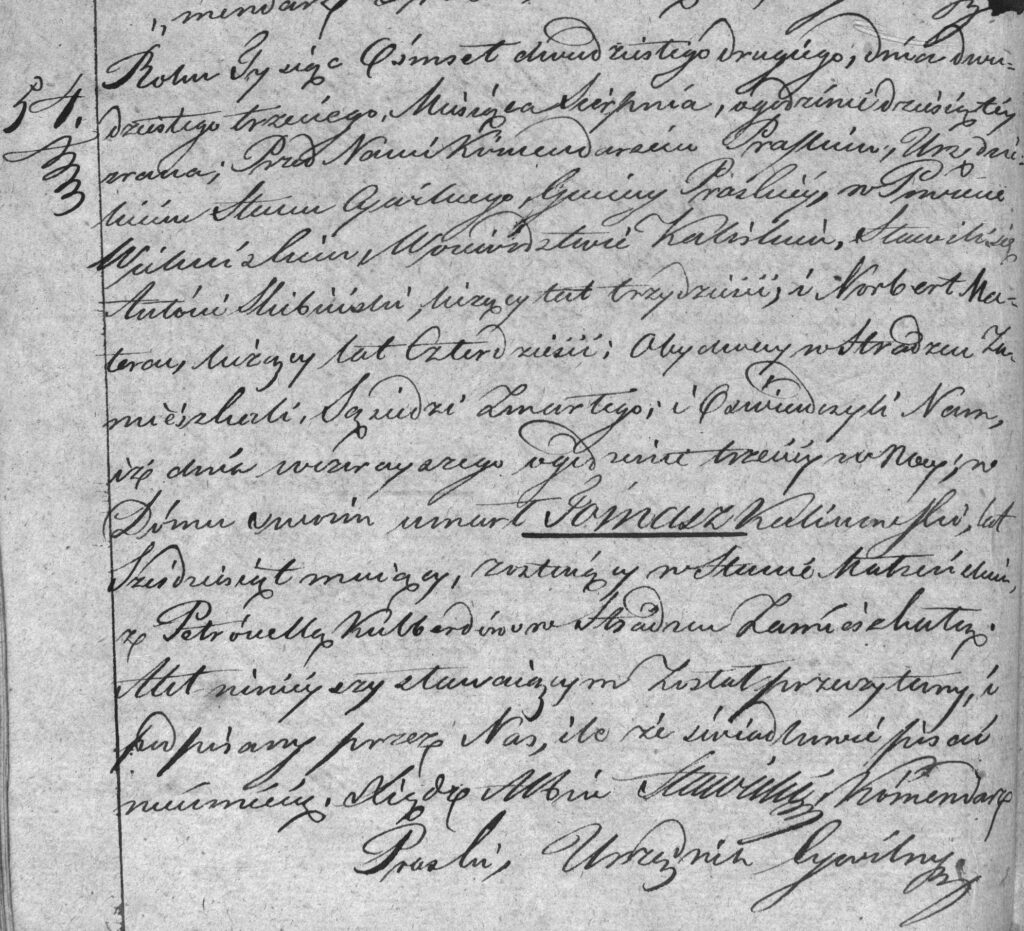 „mendarz
54.
Roku Tysiąc Ośmset dwudziestego drugiego, dnia dwu-
dziestego trzeciego, Miesiąca Sierpnia, o godzinie dziesiątey
zrana, Przed Nami Kómendarzem Praskim, Urzędni-
kiem Stanu Cywilnego, Gminy Praskiey, w Powiecie
Wieluńskim, Woiewództwie Kaliskim, Stawili się
Antóni Skibiński, liczący lat trzydzieści, i Norbert Ma-
teray, liczący lat Czterdzieści; Obydway w Stradzcu Za-
mieszkali, Sąsiedzi Zmarłego; i Oświadczyli Nam,
iż dnia wczorayszego o godzinie trzeciey w Nocy, w
Dómu swoim umarł Tómasz Kalinowski, lat
Sześdziesiąt maiący, zostaiący w Stanie Małżeńskim,
z Petronellą Kulberdów w Stradzcu Zamieszkałą.
Akt ninieyszy stawaiącym Został przeczytany, i
podpisany przez Nas, ile że świadkowie pisać
nieumieią. Xiądz Albin Stawiski, Kómendarz
Praski, Urzędnik Cywilny.